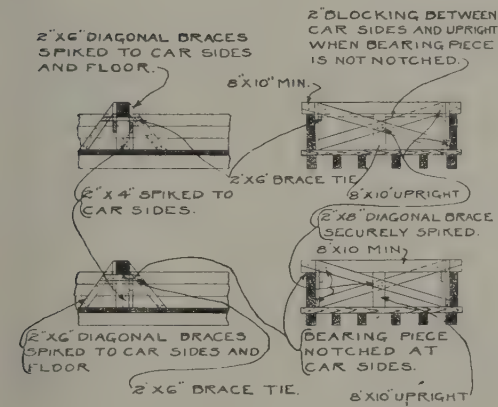 2"X6" DIAGONAL BRACES
SPIKED TO CAR SIDES
AND FLOOR.
2" BLOCKING BETWEEN
CAR SIDES AND UPRIGHT
WHEN BEARING PIECE
IS NOT NOTCHED.
8"X10" MIN.
2"X6" BRACE TIE
8"X10" UPRIGHT
2" X 4" SPIKED TO
CAR SIDES.
2"X8" DIAGONAL BRACE
SECURELY SPIKED.
8"X10 MIN.
2"X6" DIAGONAL BRACES
SPIKED TO CAR SIDES AND
FLOOR
2"X6" BRACE TIE.
BEARING PIECE
NOTCHED AT
CAR SIDES.
8"X10" UPRIGHT